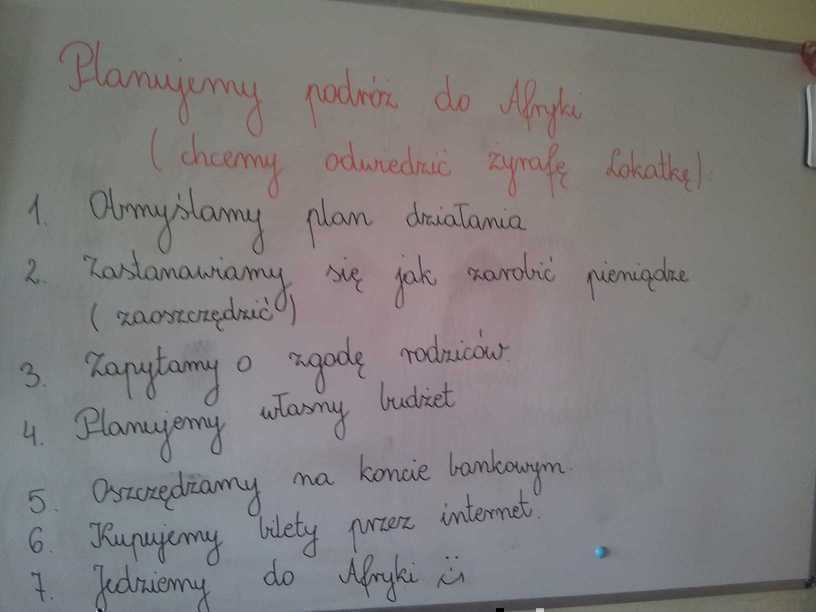 Planujemy podróż do Afryki
( chcemy odwiedzić żyrafę Lokatkę)
1. Obmyślamy plan działania
2. Zastanawiamy się jak zarobić pieniądze
( zaoszczędzić )
3. Zapytamy o zgodę rodziców.
4. Planujemy własny budżet
5. Oszczędzamy na koncie bankowym.
6. Kupujemy bilety przez internet.
7. Jedziemy do Afryki :)